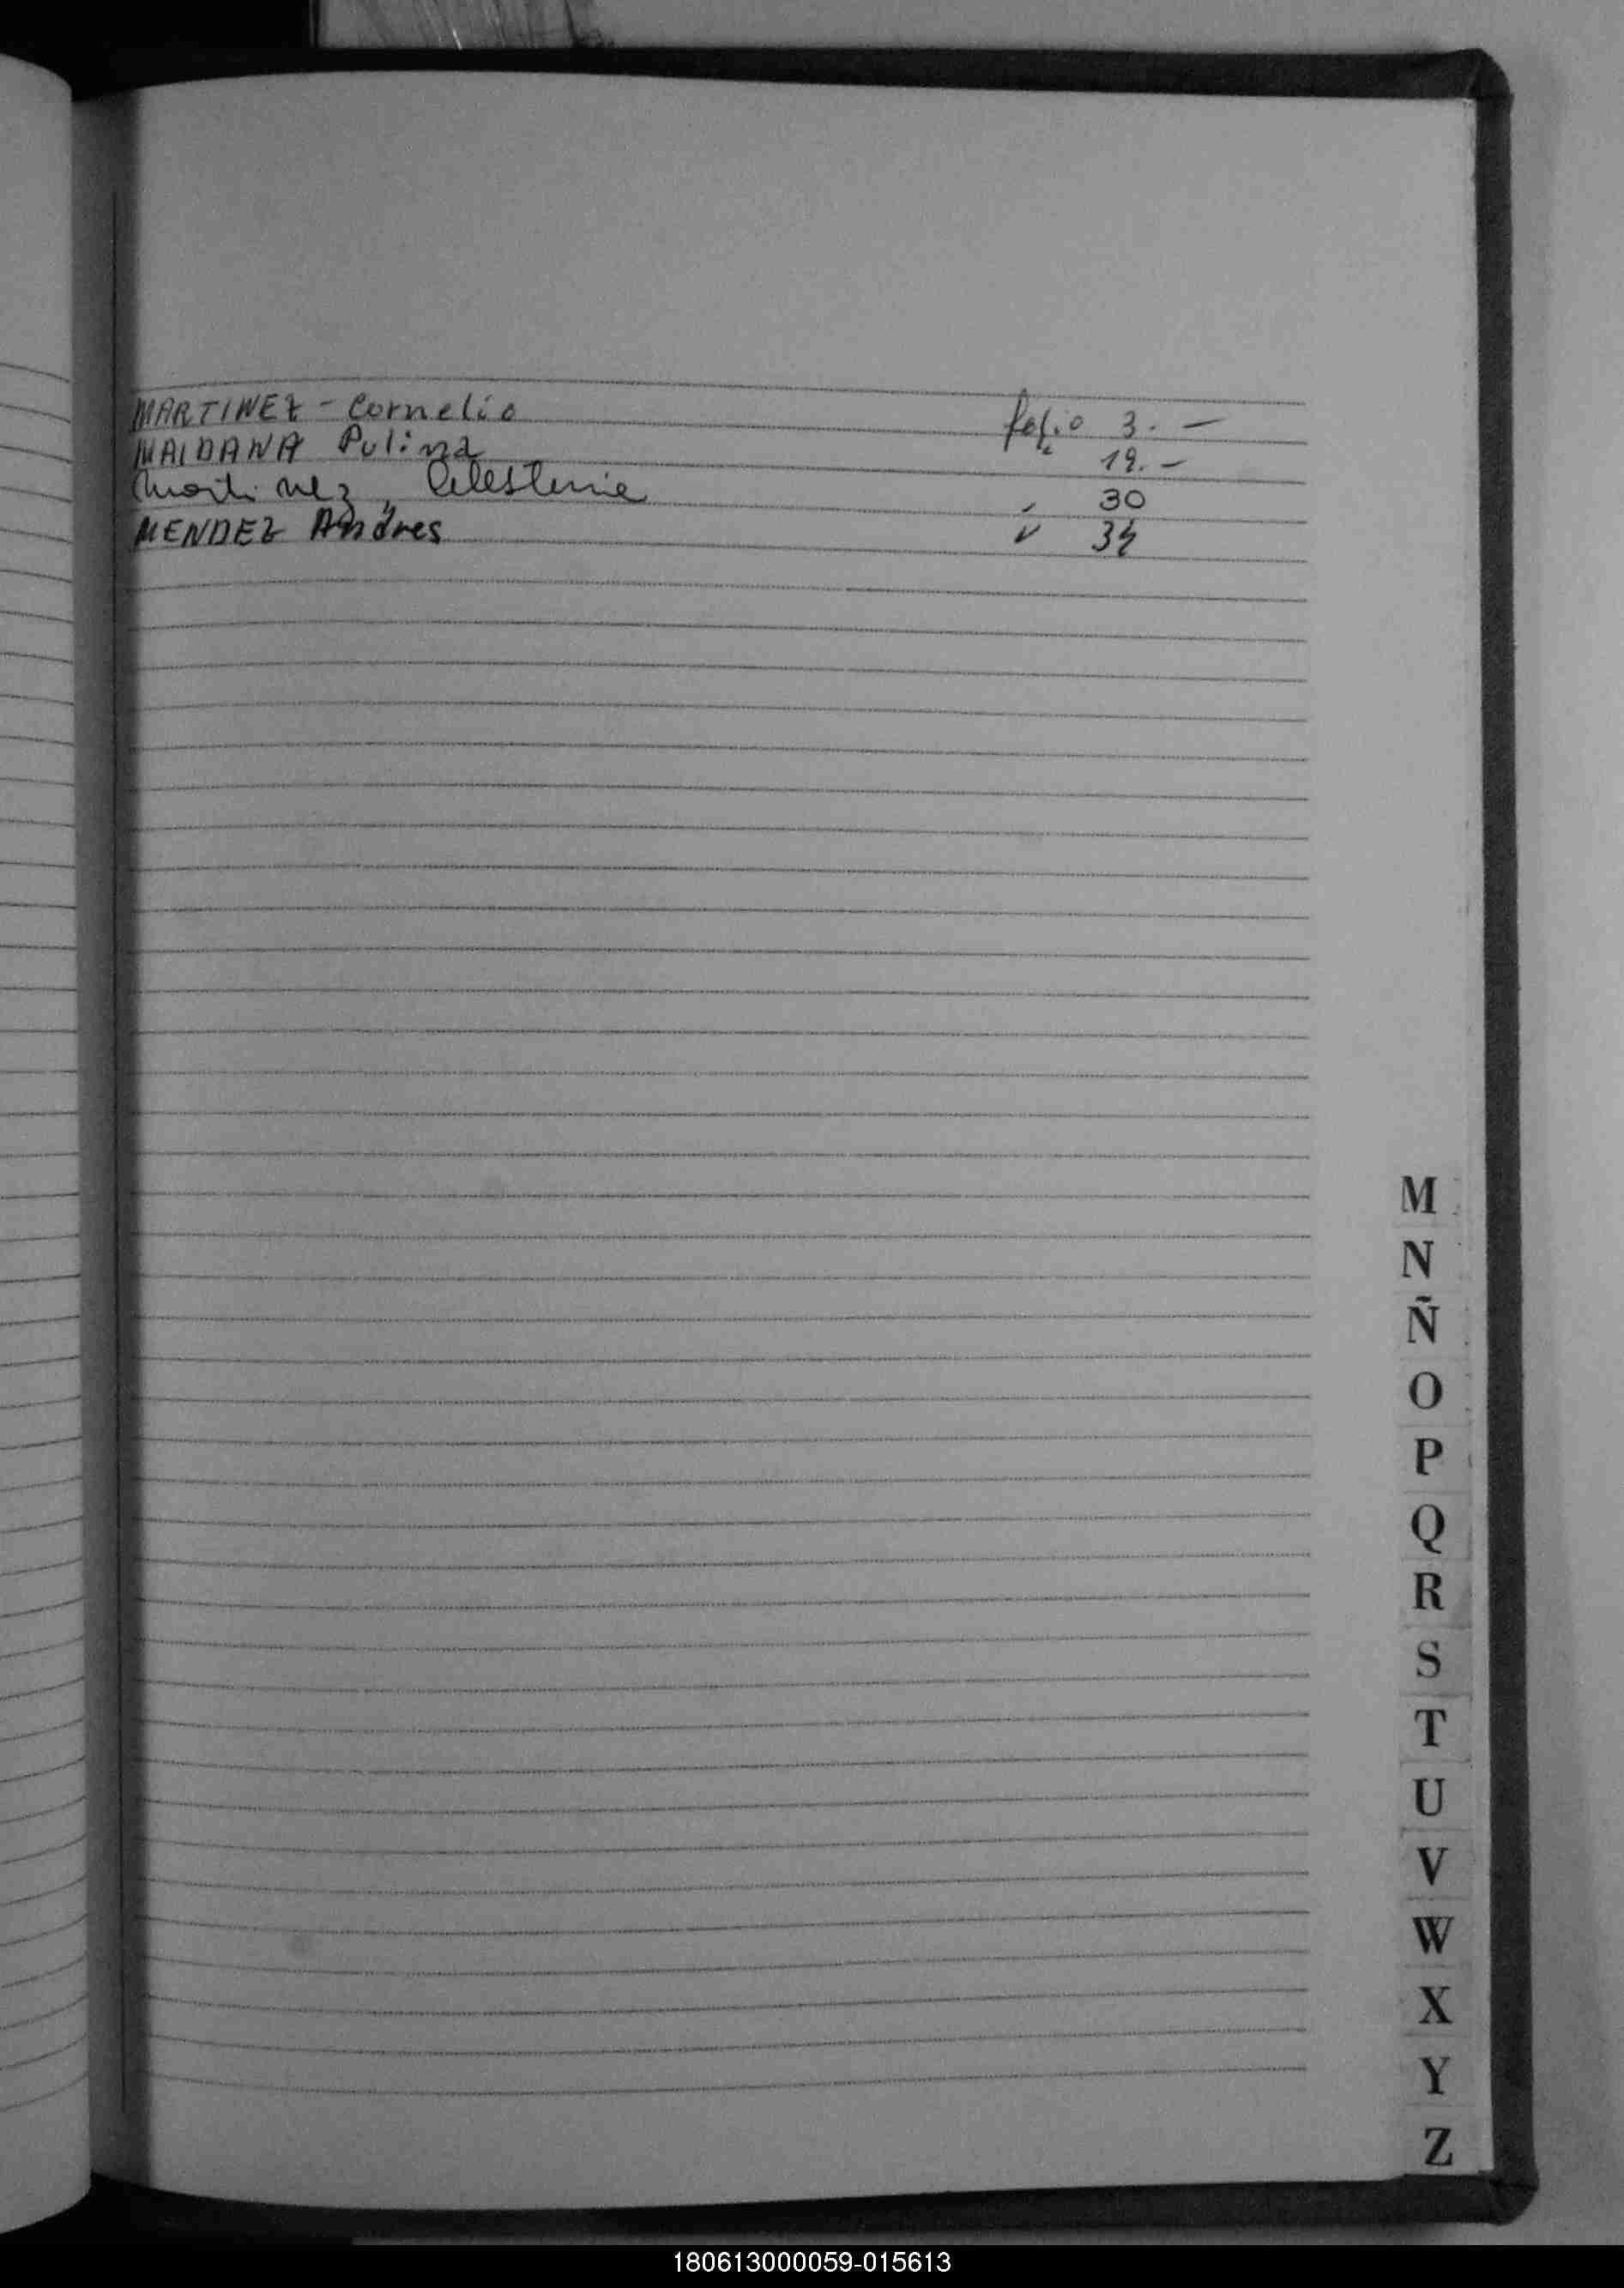 MARTINEZ - Cornelio folio 3. -
MAIDANA Pulina 19. -
Martinez, Celesterie 30
MENDEZ Andres 34
M
N
Ñ
O
P
Q
R
S
T
U
V
W
X
Y
Z
180613000059-015613